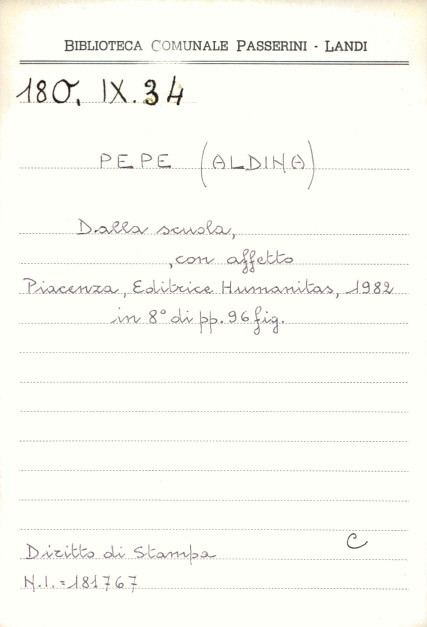 BIBLIOTECA COMUNALE PASSERINI - LANDI
180. IX. 34
PEPE (ALDINA)
Dalla scuola,
, con affetto
Piacenza, Editrice Humanitas, 1982
in 8° di pp. 96 fig.
C
Diritto di Stampa
N.I. = 181767